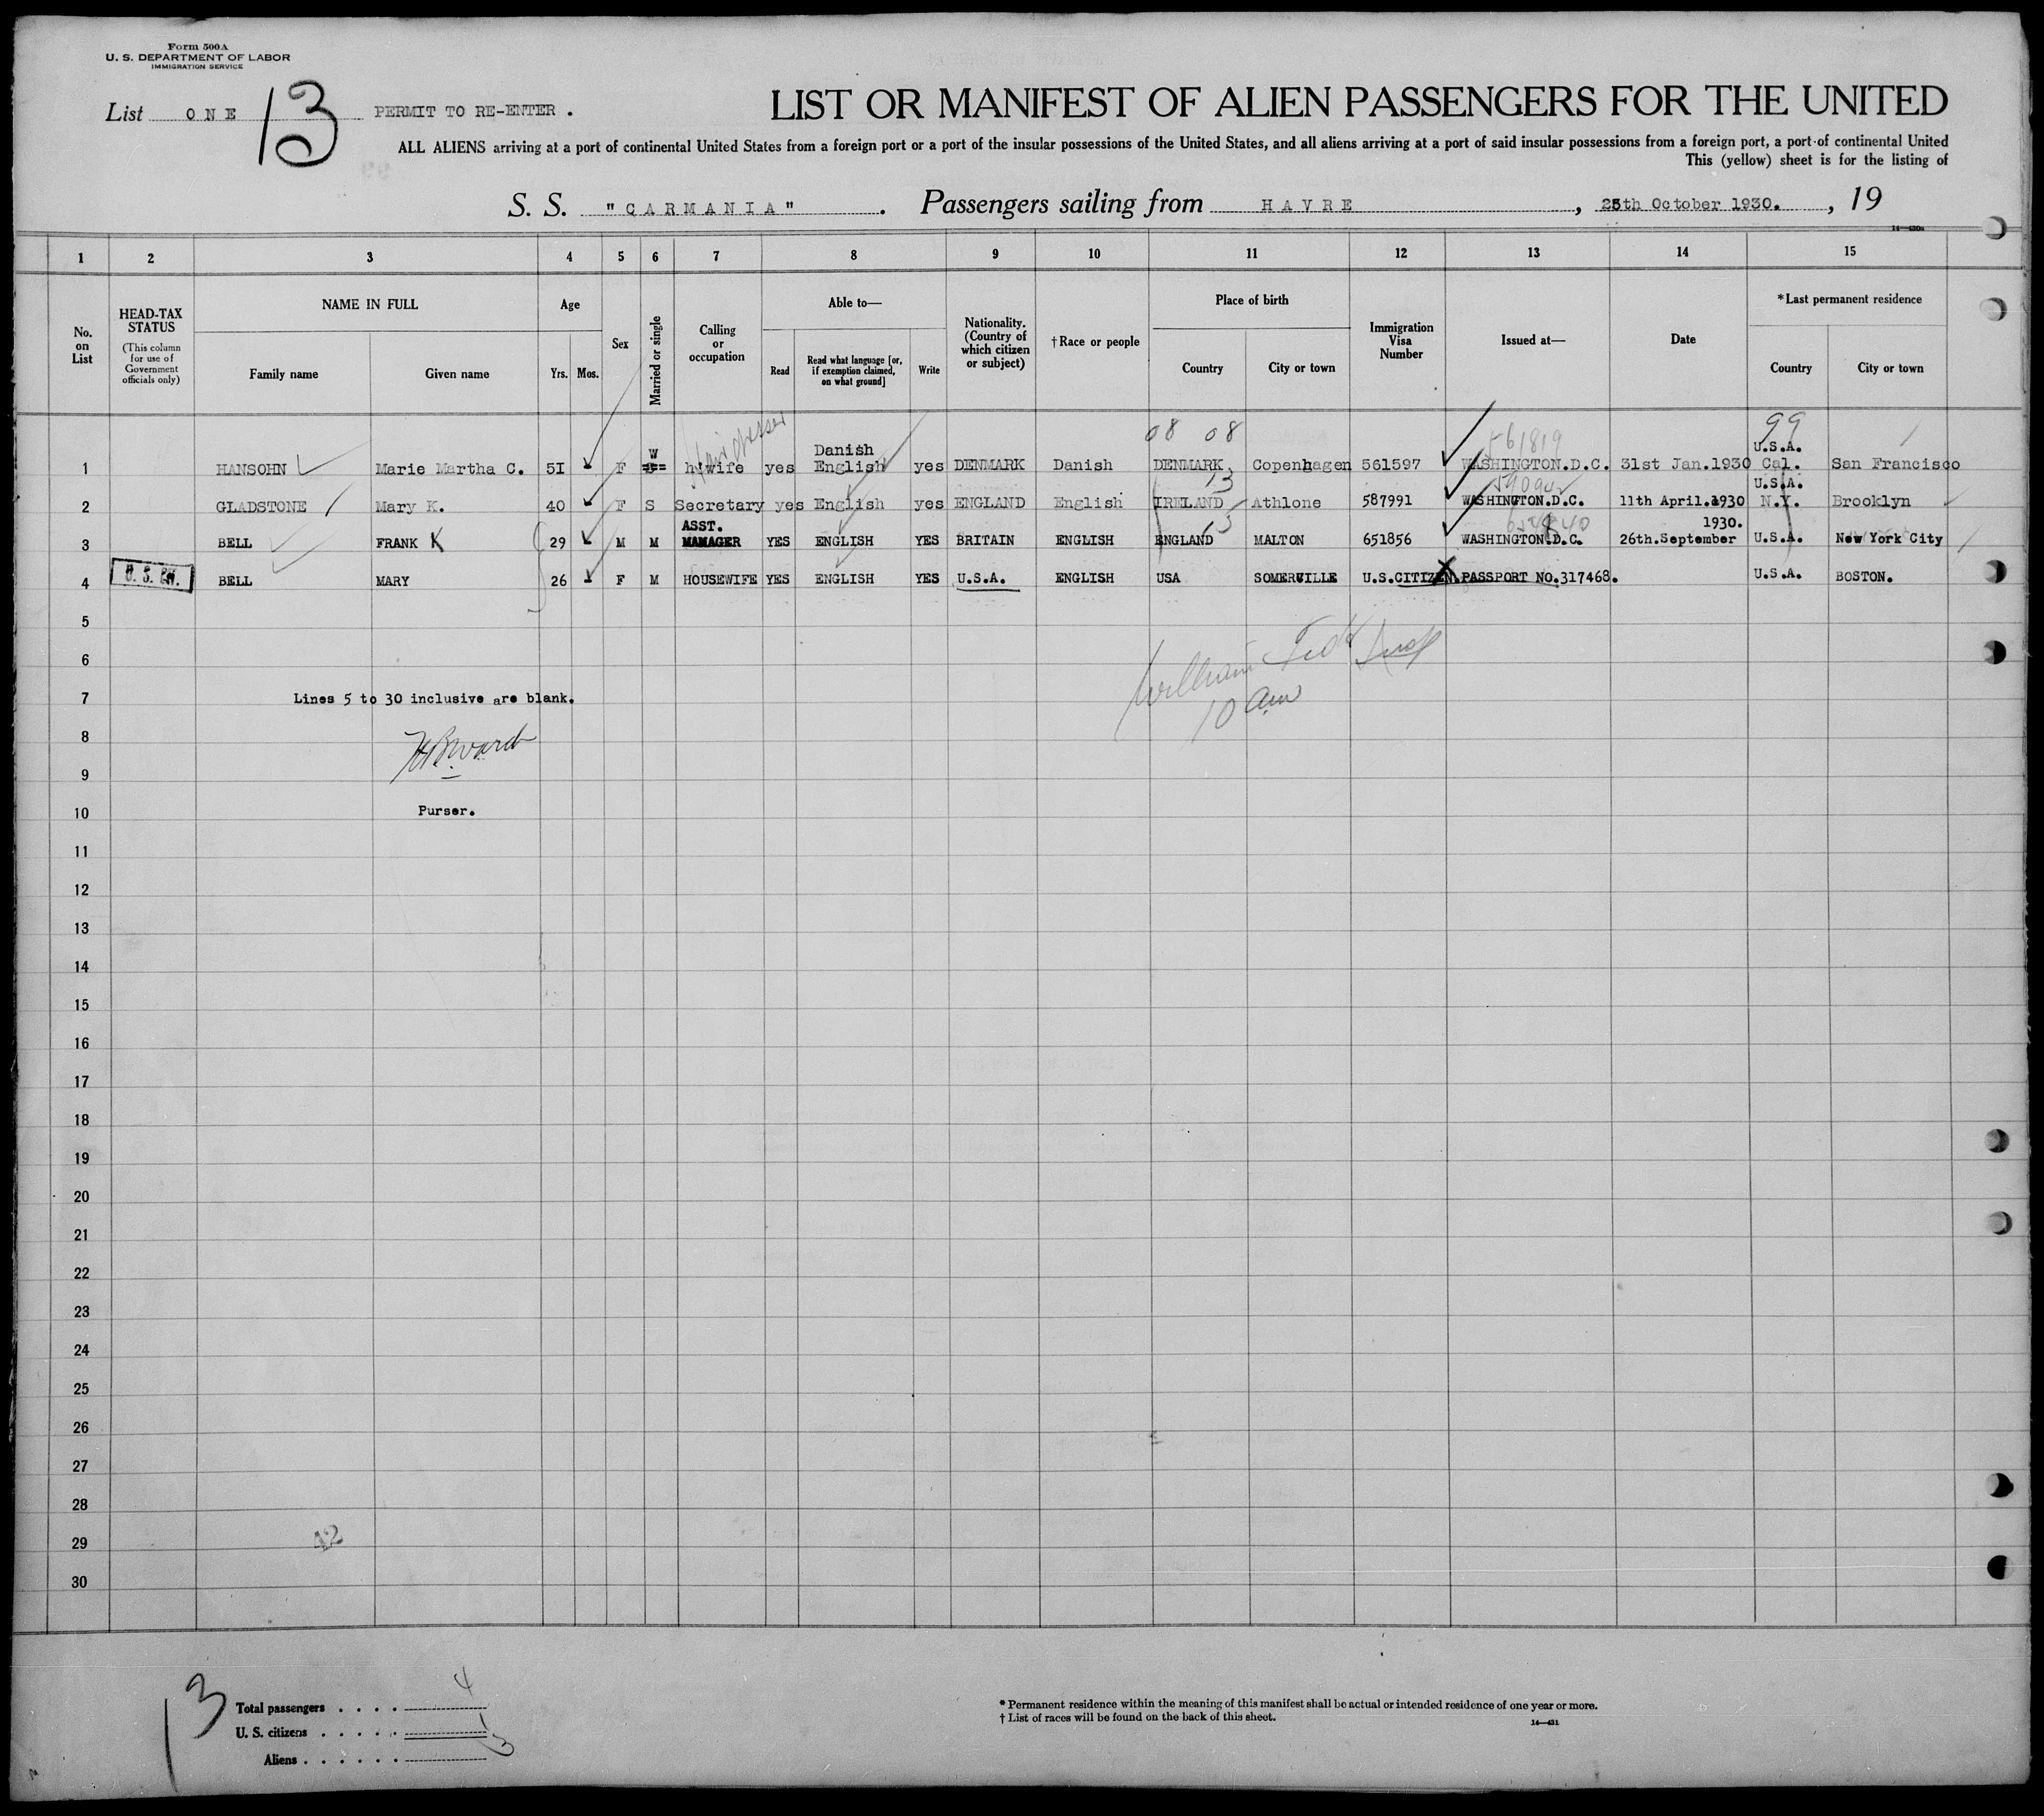 Form 500A
U. S. DEPARTMENT OF LABOR
IMMIGRATION SERVICE
List ONE 13 PERMIT TO RE-ENTER .
LIST OR MANIFEST OF ALIEN PASSENGERS FOR THE UNITED
ALL ALIENS arriving at a port of continental United States from a foreign port or a port of the insular possessions of the United States, and all aliens arriving at a port of said insular possessions from a foreign port, a port of continental United
This (yellow) sheet is for the listing of
S. S. "CARMANIA" . Passengers sailing from HAVRE , 25th October 1930. , 19
14—430a
1 2 3 4 5 6 7 8 9 10 11 12 13 14 15
No. on List
HEAD-TAX STATUS
(This column for use of Government officials only)
NAME IN FULL
Family name Given name
Age
Yrs. Mos.
Sex
Married or single
Calling or occupation
Able to—
Read Read what language [or, if exemption claimed, on what ground] Write
Nationality. (Country of which citizen or subject)
†Race or people
Place of birth
Country City or town
Immigration Visa Number
Issued at—
Date
*Last permanent residence
Country City or town
08 08 561819 99
W Hairdresser Danish U.S.A.
1 HANSOHN Marie Martha C. 5I F h/wife yes English yes DENMARK Danish DENMARK Copenhagen 561597 WASHINGTON.D.C. 31st Jan.1930 Cal. San Francisco
13 U.S.A.
2 GLADSTONE Mary K. 40 F S Secretary yes English yes ENGLAND English IRELAND Athlone 587991 WASHINGTON.D.C. 11th April.1930 N.Y. Brooklyn
ASST. 13 1930.
3 BELL FRANK K 29 M M MANAGER YES ENGLISH YES BRITAIN ENGLISH ENGLAND MALTON 651856 WASHINGTON.D.C. 26th.September U.S.A. New York City
4 U. S. BN. BELL MARY 26 F M HOUSEWIFE YES ENGLISH YES U.S.A. ENGLISH USA SOMERVILLE U.S.CITIZEN.PASSPORT NO.317468. U.S.A. BOSTON.
5
6 William
7 Lines 5 to 30 inclusive are blank. 10 am
8
HB Ward
9
10 Purser.
11
12
13
14
15
16
17
18
19
20
21
22
23
24
25
26
27
28
29 42
30
13
Total passengers . . . . 4
U. S. citizens . . . . . 1
Aliens . . . . . . 3
* Permanent residence within the meaning of this manifest shall be actual or intended residence of one year or more.
† List of races will be found on the back of this sheet.
14—431